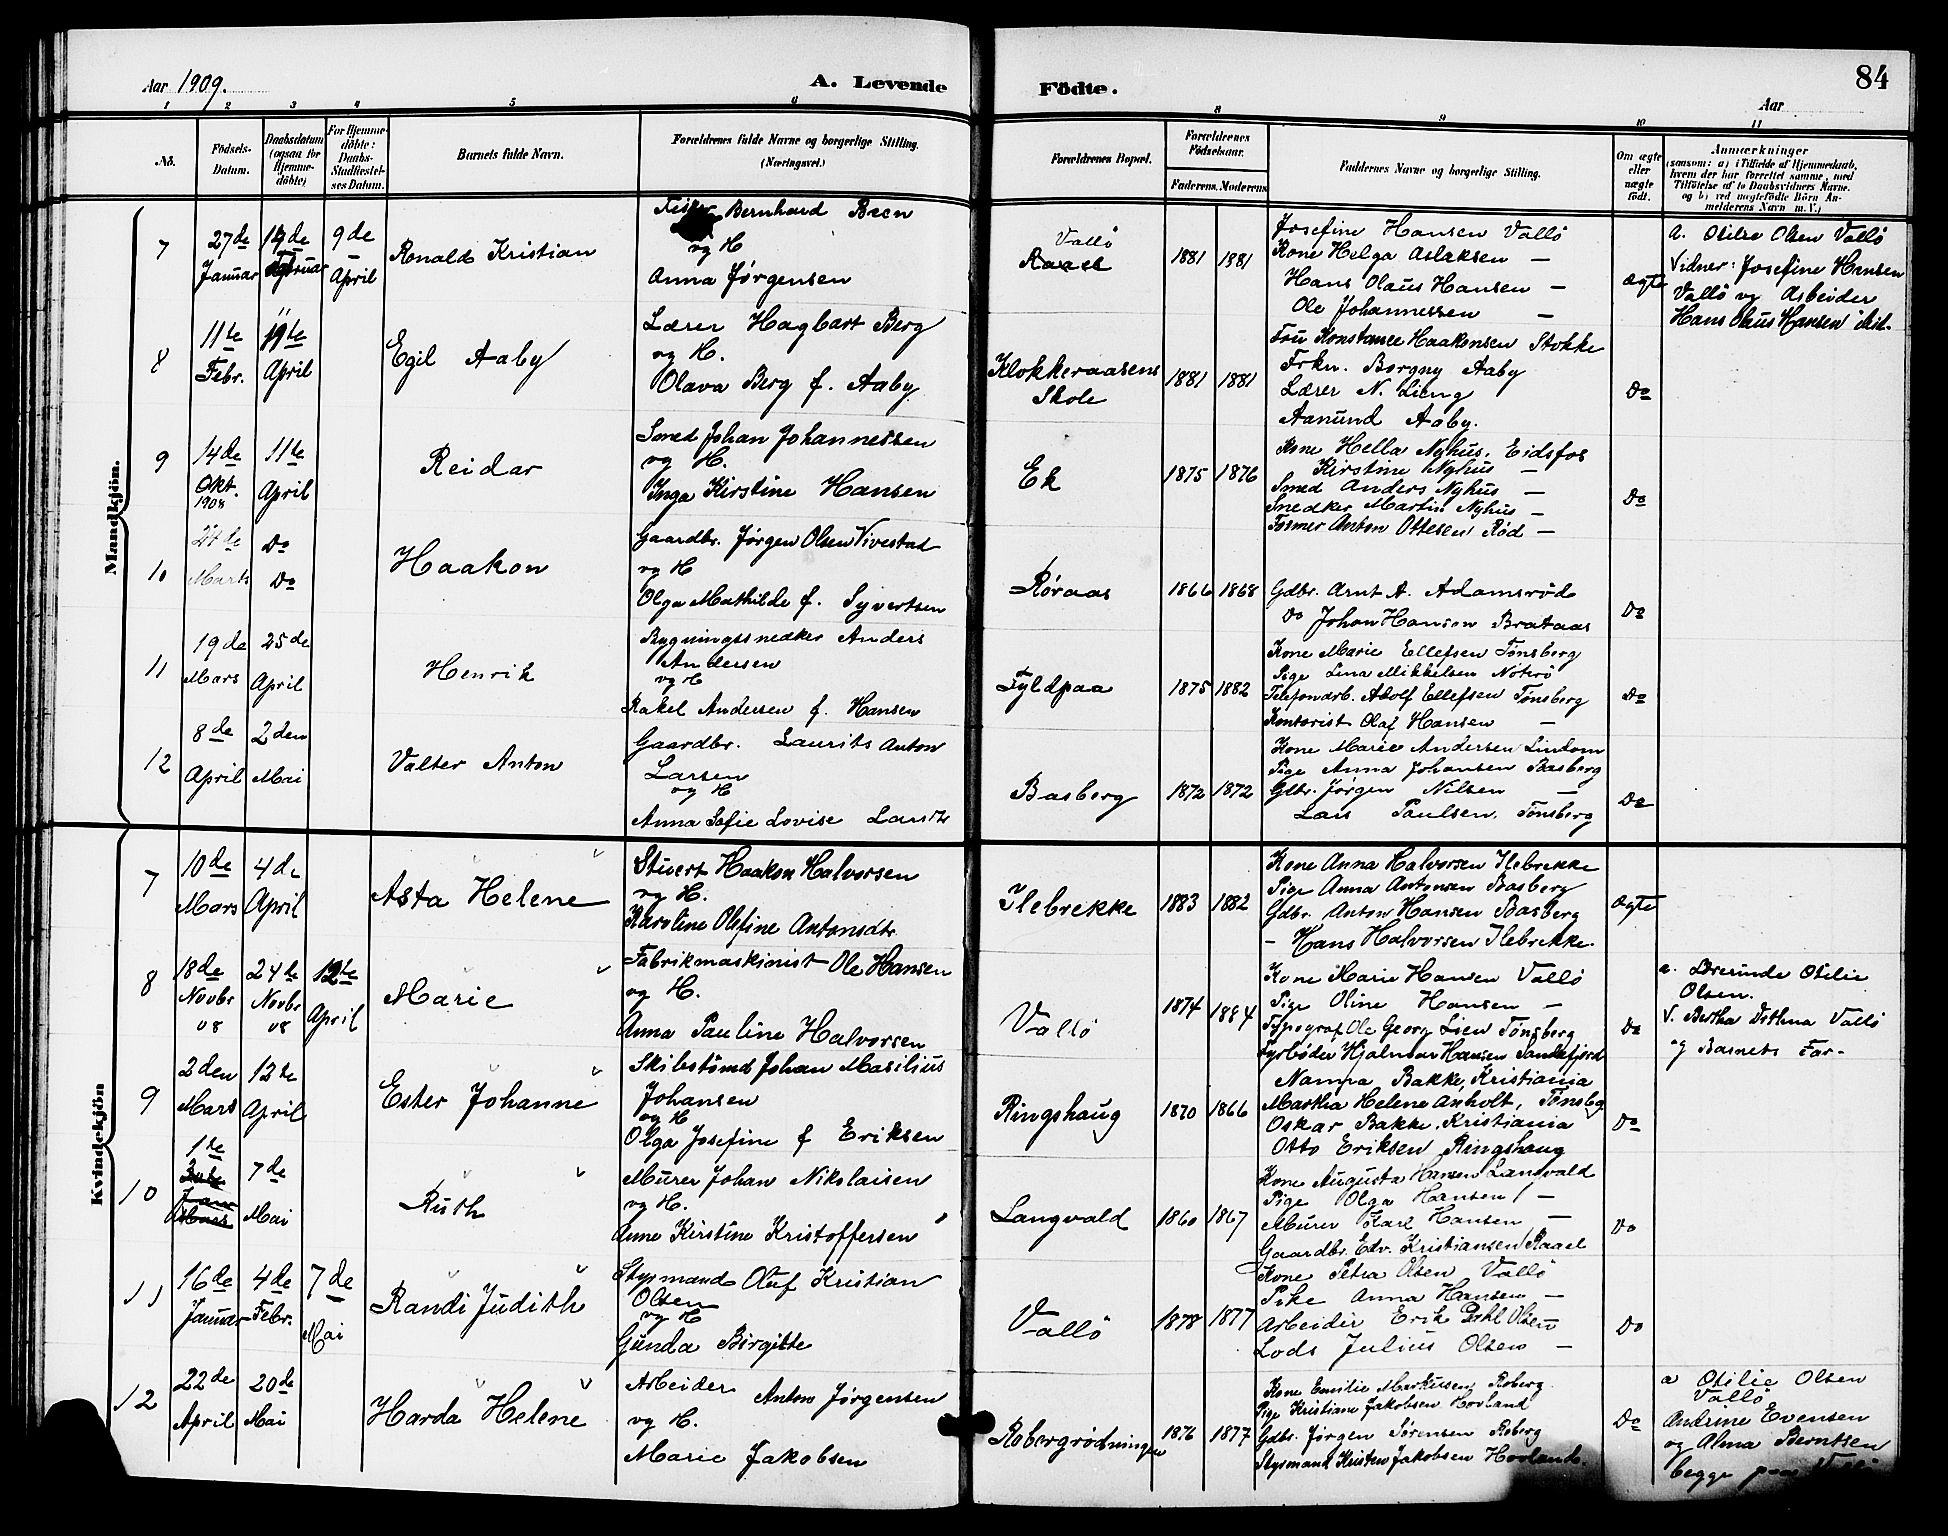 Aar 1909.
A. Levende
Födte.
84
Aar
1 2 3 4 5 6 8 9 10 11
No.
Födsels-
Datum.
Daabsdatum
(ogsaa for
Hjemme-
döbte)
For Hjemme-
döbte:
Daabs-
Stadfæstel-
ses Datum.
Barnets fulde Navn.
Forældrenes fulde Navne og borgerlige Stilling.
(Næringsvei.)
Forældrenes Bopæl.
Forældrenes
Födselsaar.
Faderens. Moderens
Faddernes Navne og borgerlige Stilling.
Om ægte
eller
uægte
födt.
Anmærkninger
(saasom: a) i Tilfælde af Hjemmedaab,
hvem der har forrettet samme, med
Tilföielse af to Daabsvidners Navne.
og b) ved uægtefödte Börn An-
melderens Navn m. V.)
Mandkjön.
7
27de
Januar
9de
April
Ronald Kristian
Fisker Bernhard Bren
og H
Anna Jørgensen
Vallö
1881 1881
Josefine Hansen Vallö
Kone Helga Aslaksen —
Hans Olaus Hansen —
Ole Johannessen —
Ægte
a. Otilie Olsen Vallö
Vidner: Josefine Hansen
Vallö og Arbeider
Hans Olaus Hansen ibid.
8
11te
Febr.
11te
April
Egil Aaby
Lærer Hagbart Berg
og H.
Olava Berg f. Aaby
Klokkeraasens
Skole
1881 1881
Fru Konstance Haakonsen Stokke
Frkn. Borgny Aaby
Lærer N. Lieng
Aanund Aaby.
Do
9
14de
Okt.
1908
11te
April
Reidar
Smed Johan Johannessen
og H.
Inga Kirstine Hansen
Ek
1875 1876
Kone Hella Nyhus, Eidsfos
Kirstine Nyhus —
Smed Anders Nyhus —
Snedker Martin Nyhus —
Former Anton Ottesen Rød —
Do
10
24de
Marts
Do
Do
Haakon
Gaardbr. Jørgen Olsen Vivestad
og H
Olga Mathilde f. Syvertsen
Røraas
1866 1868
Gdbr. Arnt A. Adamsrød
Do Johan Hanson Brataas
Do
11
19de
Mars
25de
April
Henrik
Bygningssnedker Anders
Andersen
og H
Rakel Andersen f. Hansen
Fyldpaa
1875 1882
Kone Marie Ellefsen Tønsberg
Pige Lina Mikkelsen Nøterö
Telefonarb. Adolf Ellefsen Tønsberg
Kontorist Olaf Hansen —
Do
12
8de
April
2den
Mai
Valter Anton
Gaardbr. Laurits Anton
Larsen
og H
Anna Sofie Lovise
Basberg
1872 1872
Kone Marie Andersen Lindom
Pige Anna Johansen Basberg
Gdbr. Jørgen Nilsen —
Lars Paulsen. Tønsberg
Do
Kvindekjön
7
10de
Mars
4de
April
Asta Helene
Stuert Haakon Halvorsen
og H.
Karoline Olefine Antonsdtr.
Ilebrekke
1883 1882
Kone Anna Halvorsen Ilebrekke
Pige Anna Antonsen Basberg
Gdbr. Anton Hansen Basberg
- Hans Halvorsen Ilebrekke.
Ægte
8
18de
Novbr
08
24de
Novbr
08
12te
April
Marie
Fabrikmaskinist Ole Hansen
og H.
Anna Pauline Halvorsen
Vallö
1874 1884
Kone Marie Hansen Vallö
Pige Oline Hansen —
Typograf Ole Georg Lien Tønsberg
Fyrbøder Hjalmar Hansen Sandefjord
Do
a. Lærerinde Otilie
Olsen.
V. Bertha Vallö
og Barnets Far-
9
2den
Mars
12te
April
Ester Johanne
Skibstømd Johan Masilius
Johansen
og H
Olga Josefine f Eriksen
Ringshaug
1870 1866
Nanna Bakke, Kristiania
Martha Helene Anholt, Tønsbg
Oskar Bakke, Kristiania
Otto Eriksen Ringshaug
Do
10
1te
Mars
7de
Mai
Ruth
Murer Johan Nikolaisen
og H.
Anne Kirstine Kristoffersen
Langvald
1860 1867
Kone Augusta Hansen Langvald
Pige Olga Hansen —
Murer Karl Hansen —
Gaardbr. Edv. Kristiansen Raael
Do
11
16de
Januar
4de
Febr.
7de
Mai
Randi Judith
Stysmand Oluf Kristian
Olsen
og H
Gunda Birgitte
Vallö
1878 1877
Kone Petra Olsen Vallö
Pike Anna Hansen —
Arbeider Erik Olsen
Lods Julius Olsen —
Do
12
22de
April
20de
Mai
Harda Helene
Arbeider Anton Jørgensen
og H.
Marie Jakobsen
Robergrødningen
1876 1877
Kone Emilie Markussen Roberg
Pige Kristiane Jakobsen Hovland
Gdbr. Jørgen Sørensen Roberg
Stysmand Kristen Jakobsen Hovland.
Do
a Otilie Olsen
Vallö
Andrine Evensen
og Alma Berntsen
begge paa Vallö